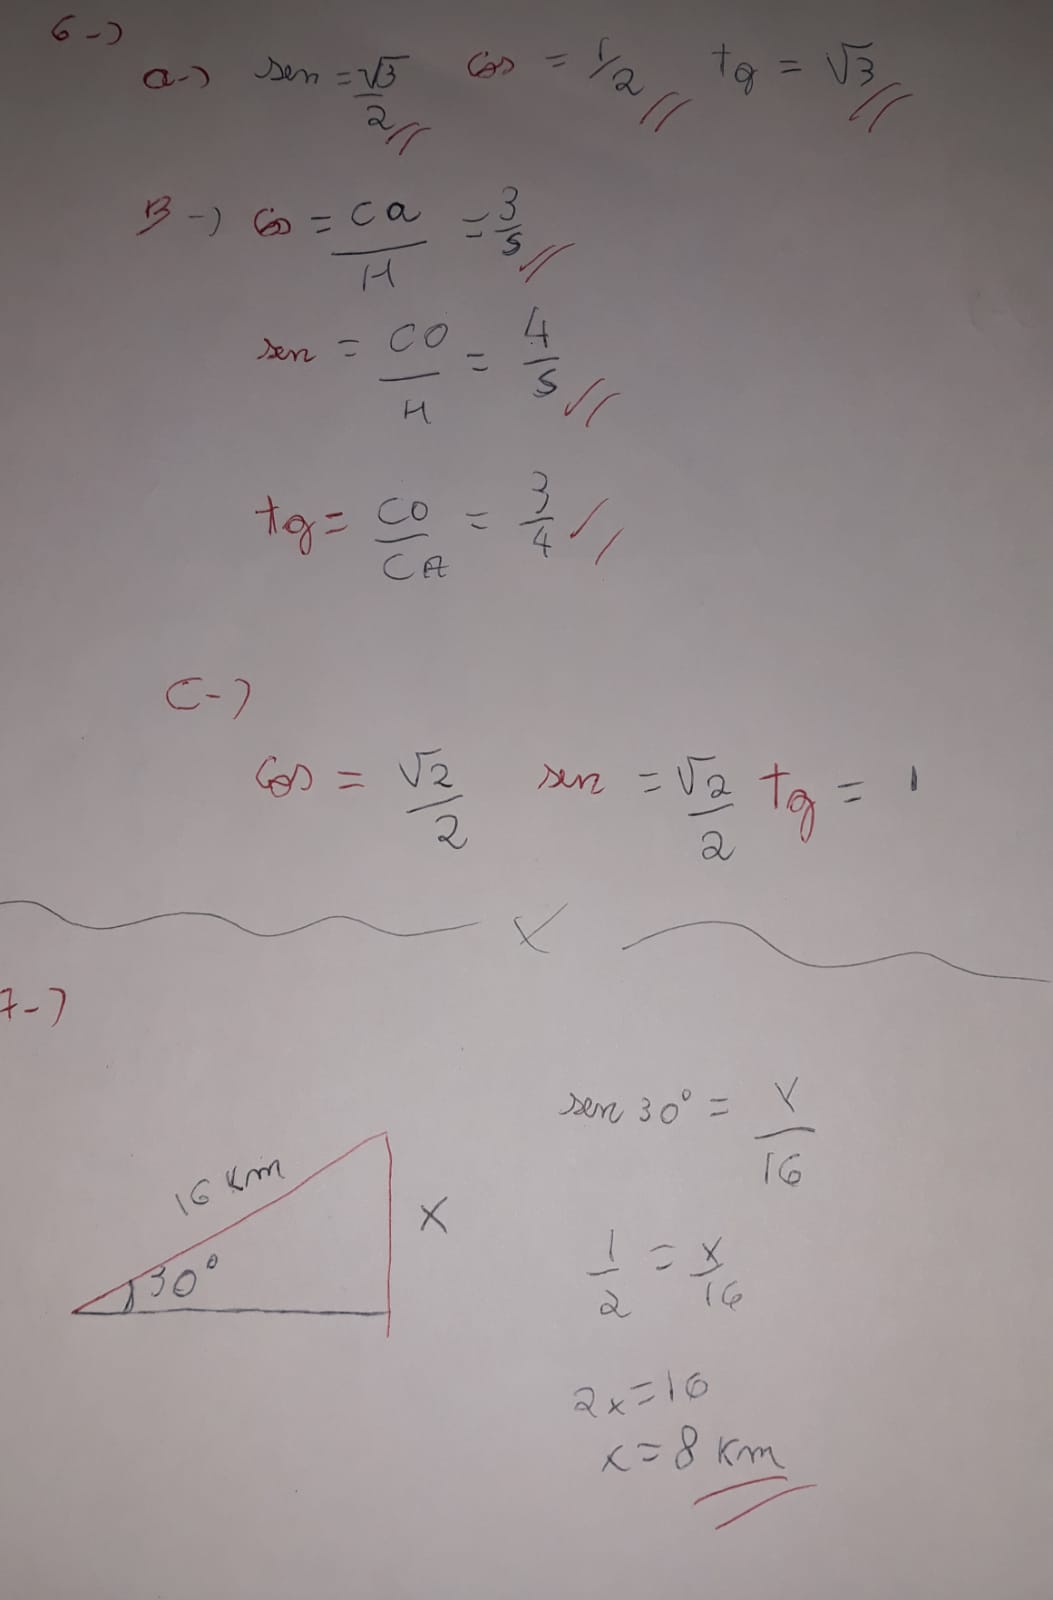 6-)
a-) sen = √3/2 cos = 1/2 tg = √3
B-) cos = ca/H = 3/5
sen = CO/H = 4/5
tg = CO/CA = 3/4
C-)
cos = √2/2 sen = √2/2 tg = 1
X
7-)
sen 30° = x/16
16 Km
X
30°
1/2 = x/16
2x = 16
x = 8 Km